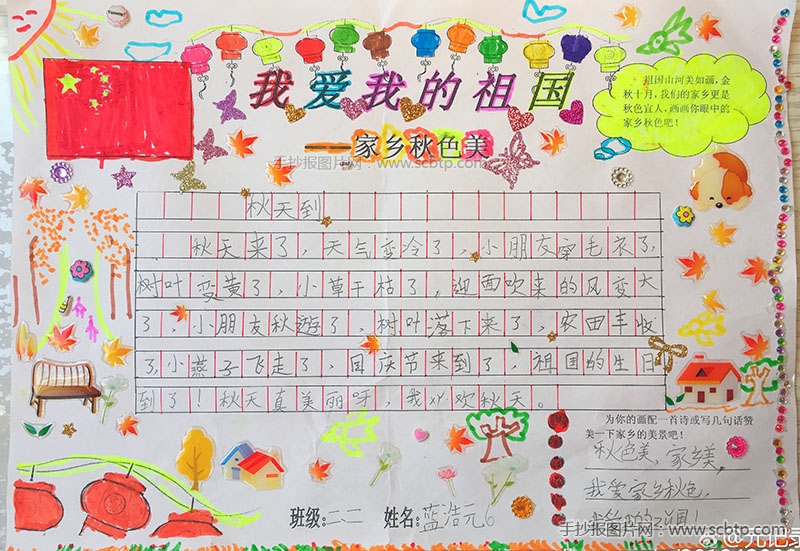 我爱我的祖国
——家乡秋色美
手抄报图片网 www.scbtp.com
祖国山河美如画，金
秋十月，我们的家乡更是
秋色宜人，画画你眼中的
家乡秋色吧！
秋天到
秋天来了，天气变冷了，小朋友穿毛衣了，
树叶变黄了，小草干枯了，迎面吹来的风变大
了，小朋友秋遊了，树叶落下来了，农田丰收
了，小燕子飞走了，国庆节来到了，祖国的生日
到了！秋天真美丽呀，我喜欢秋天。
为你的画配一首诗或写几句话赞
美一下家乡的美景吧！
秋色美，家乡美，
我爱家乡秋色，
班级：二二 姓名：蓝浩元6
手抄报图片网：www.scbtp.com